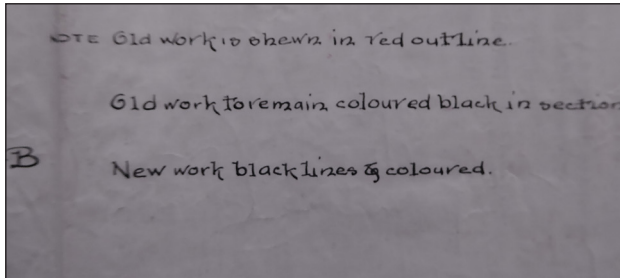 NOTE Old work is shewn in red outline.
Old work to remain coloured black in section
B
New work black lines & coloured.